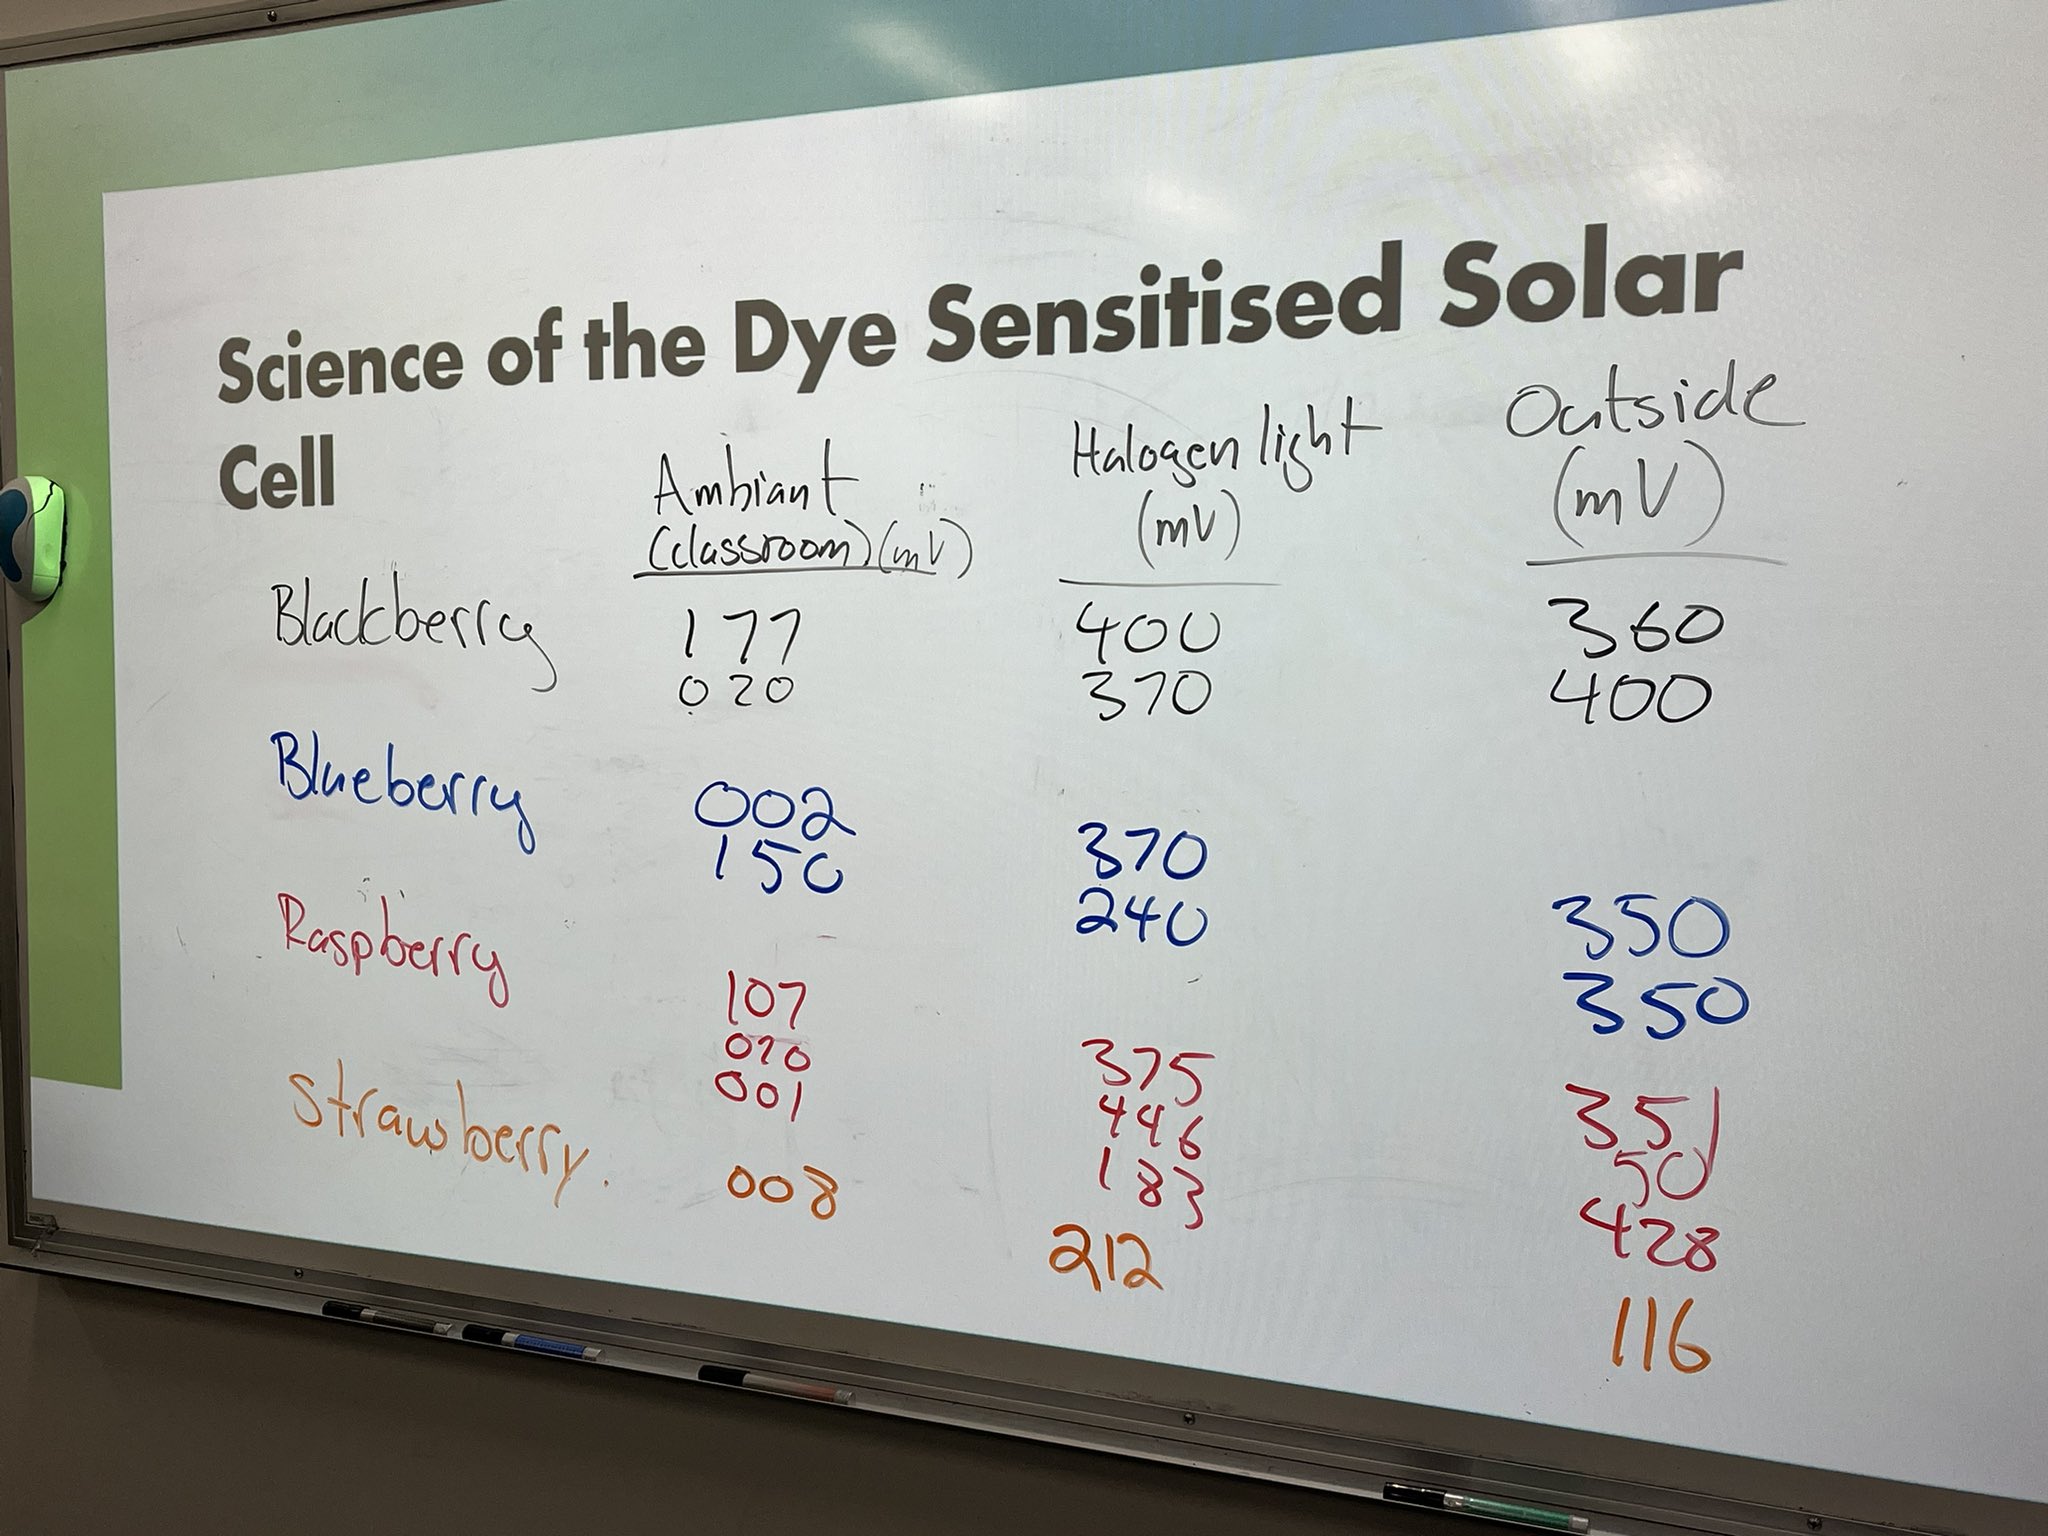 Science of the Dye Sensitised Solar
Cell
Ambiant
(classroom) (mV)
Halogen light
(mV)
Outside
(mV)
Blackberry 177 400 360
020 370 400
Blueberry 002 370 350
150 240 350
Raspberry 107 375 351
446 50
001 183 428
strawberry. 008 212 116